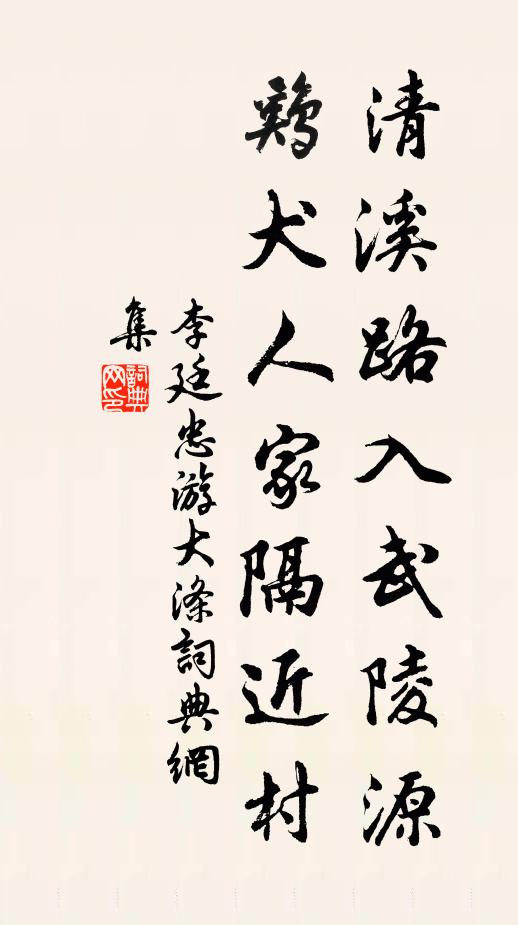 清溪路入武陵源
鷄犬人家隔近村
李廷忠游大滌詞典網
集
詞典網印